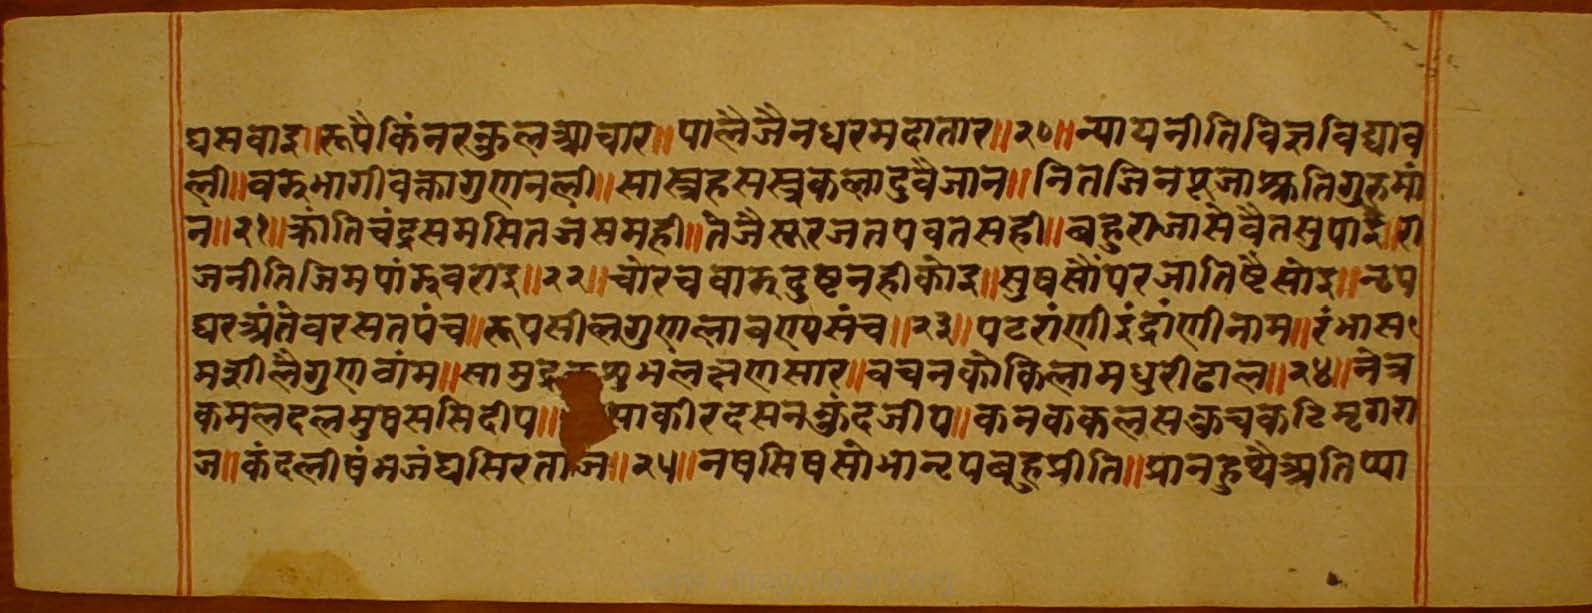 घसवाइ॥रूपैकिंनरकुलआचार॥पालैजैनधरमदातार॥२०॥न्यायनीतिविज्ञविद्याव
ली॥वझभागीवक्तागुणनली॥सास्त्रहसस्त्रकलादुवैजान॥नितजिनपूजाअतिगुरुमां
न॥२१॥क्रांतिचंद्रसमसितजसमही॥तेजैसूरजतपवतसही॥बहुराजासेवैतसुपाइ॥रा
जनीतिजिमपांझवराइ॥२२॥चोरचवाझदुष्टनहीकोइ॥सुषसौंपरजातिष्टैसोइ॥नृप
घरअंतेवरसतपंच॥रूपसीलगुणलावण्यसंच॥२३॥पटरांणीइंद्रांणीनाम॥रंभास
मशीलैगुणवांम॥सामुद्र सुभलक्षणसार॥वचनकोकिलामधुरीढाल॥२४॥नेत्र
कमलदलमुषससिदीप॥ साकीरदसनकुंदजीप॥कनककलसकुचकटिमृगरा
ज॥कंदलीषंभजंघसिरताज॥२५॥नषसिषसोभानृपबहुप्रीति॥प्रानहुथैअतिप्पा